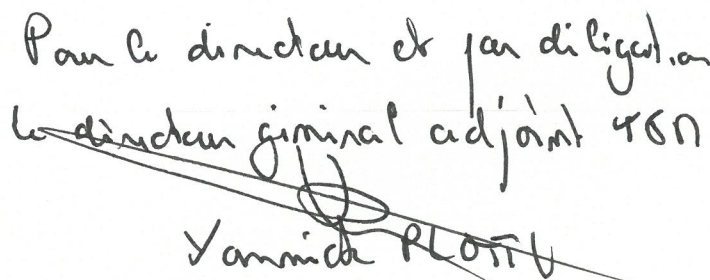 Pour le directeur et par délégation
le directeur général adjoint
Yannick